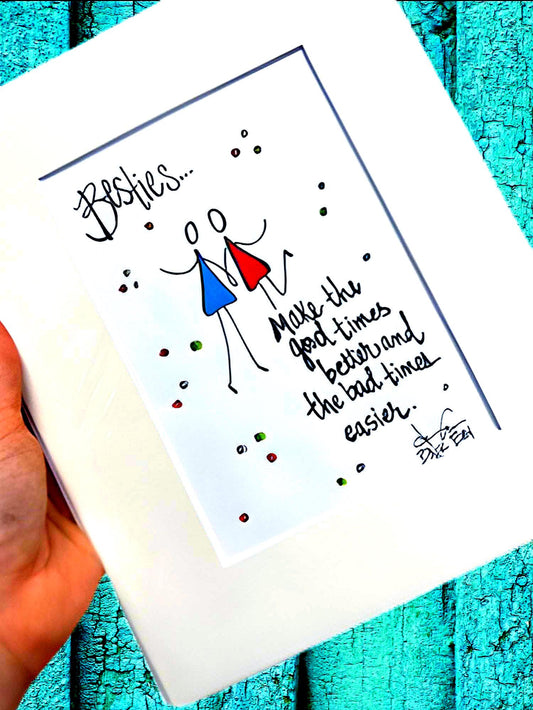 Besties...
Make the
good times
better and
the bad times
easier.